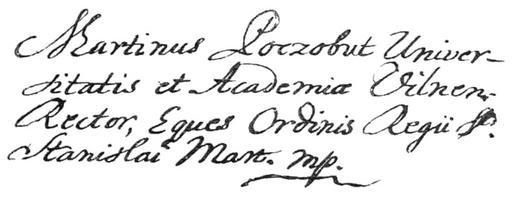 Martinus Poczobut Univer-
sitatis et Academiæ Vilnen.
Rector, Eques Ordinis Regii S.
Stanislai Mart. mp.